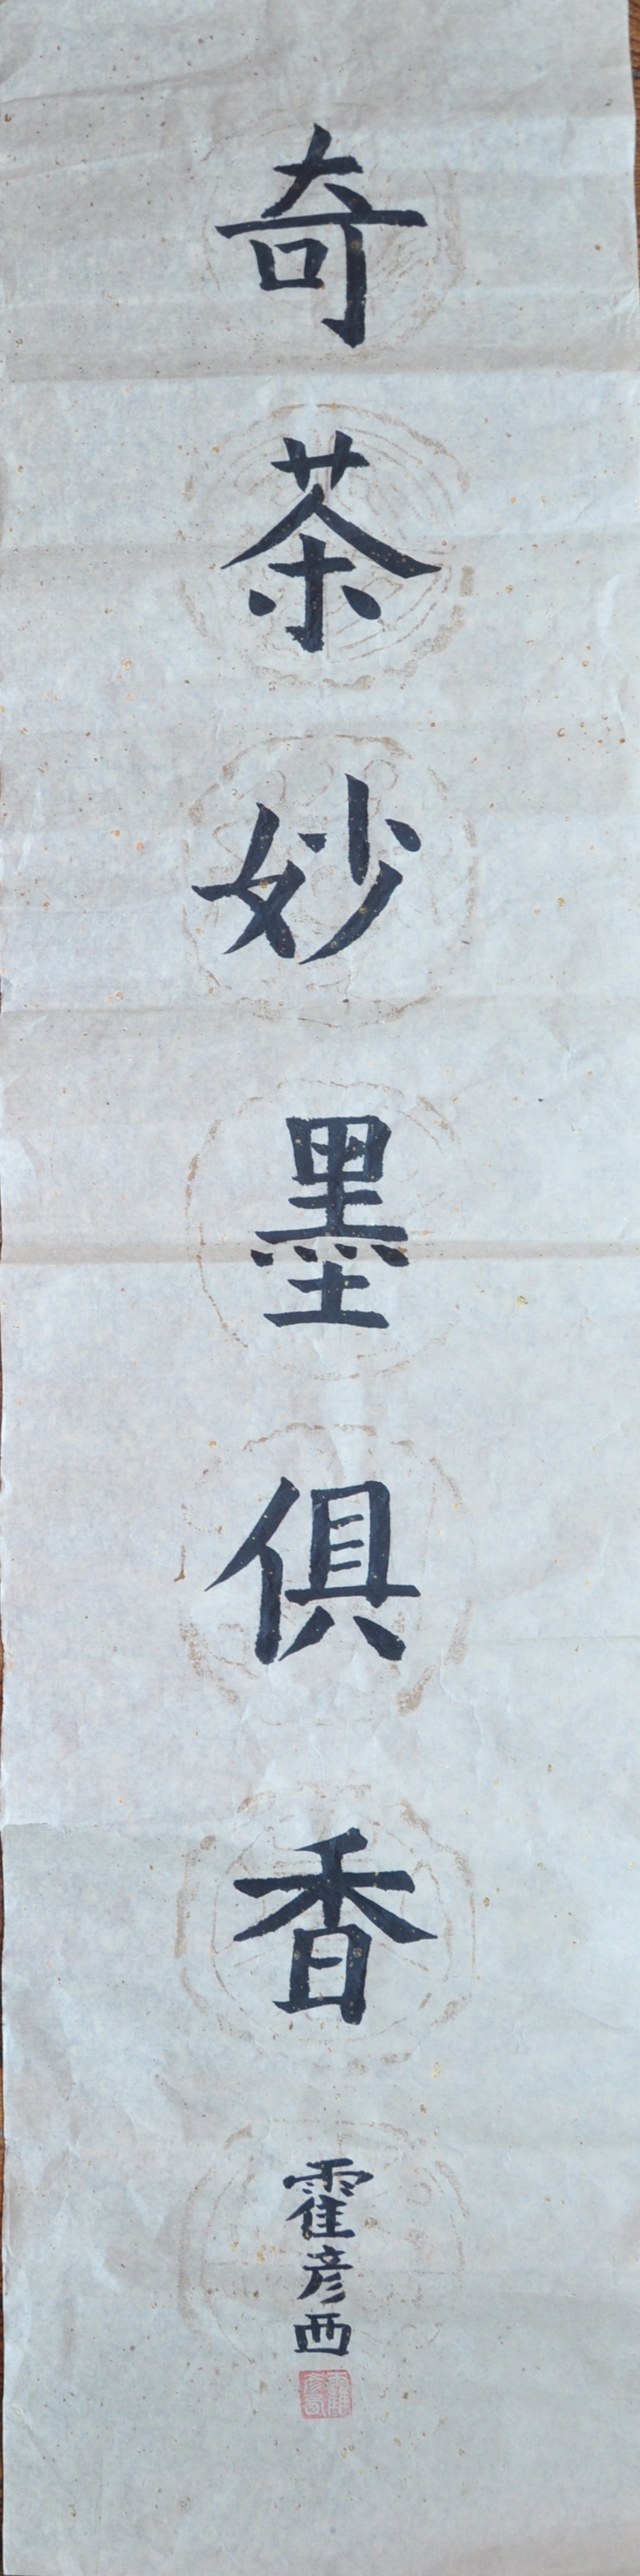 奇茶妙墨俱香
霍彦西